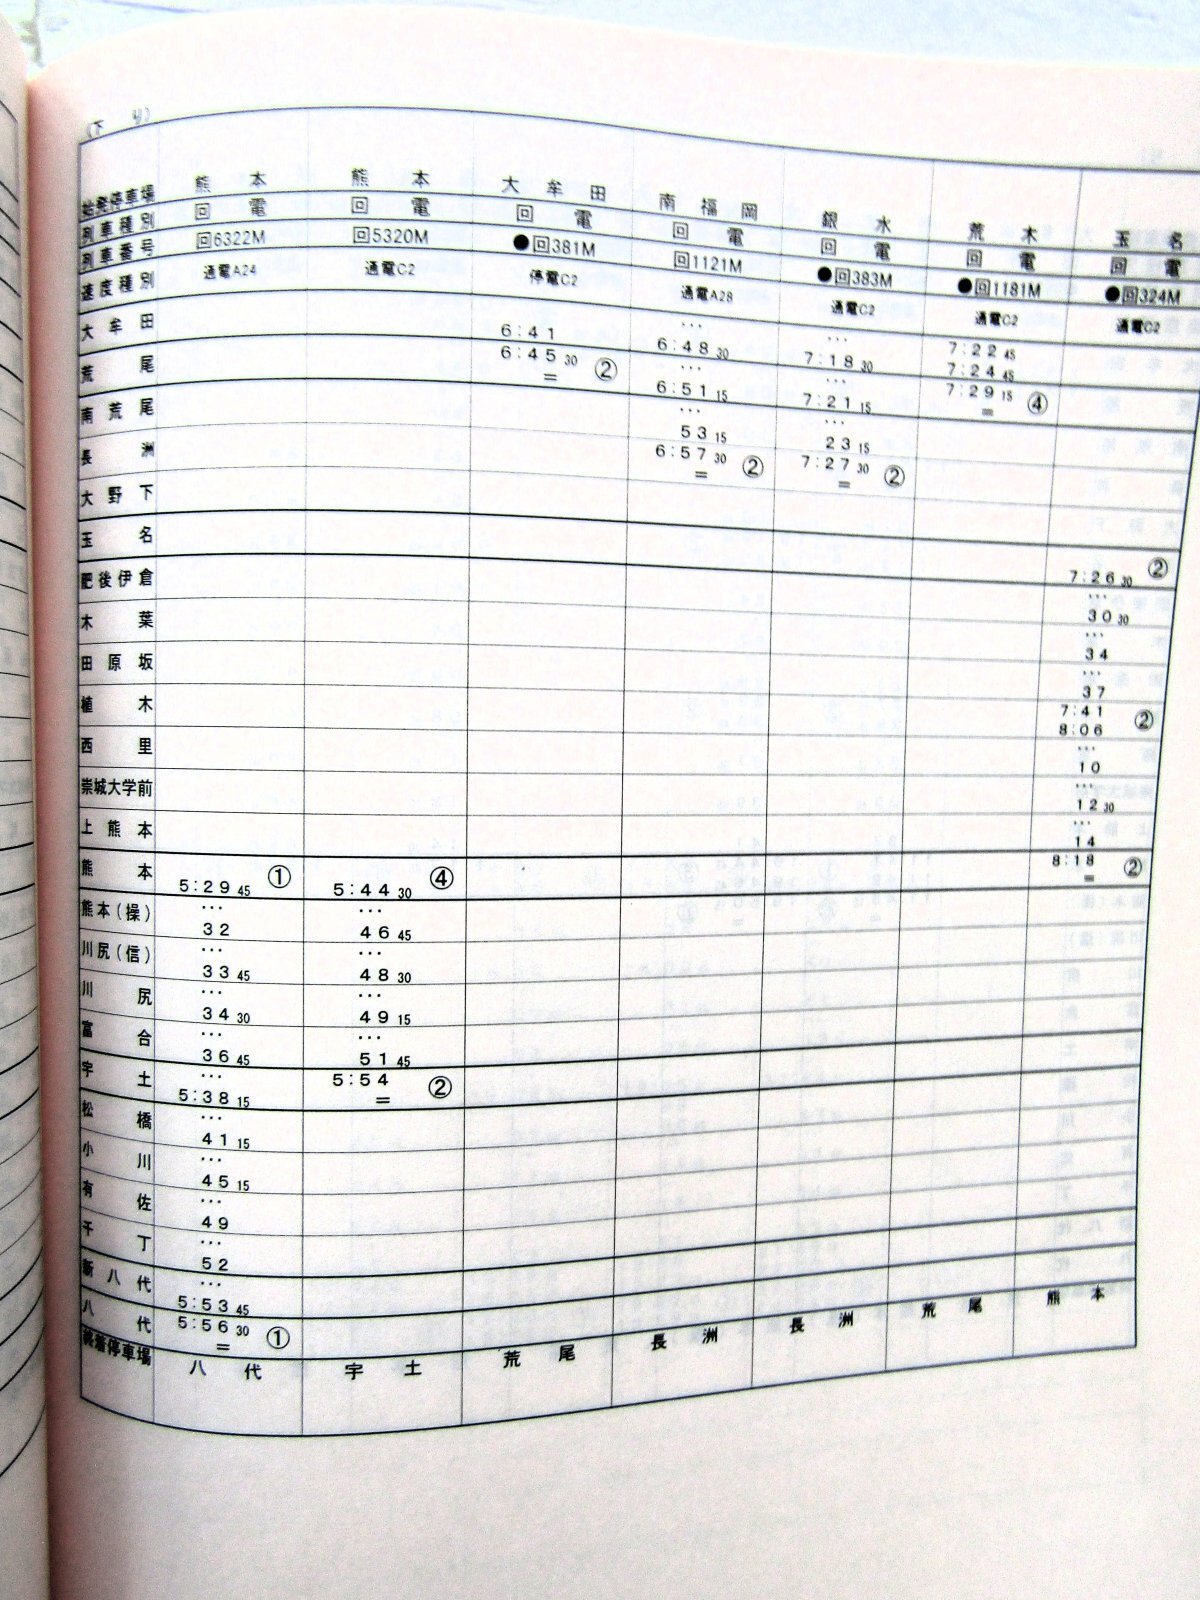 (下 り)
始発停車場 熊本 熊本 大牟田 南福岡 銀水 荒木 玉名
列車種別 回電 回電 回電 回電 回電 回電 回電
列車番号 回6322M 回5320M ●回381M 回1121M ●回383M ●回1181M ●回324M
速度種別 通電A24 通電C2 停電C2 通電A28 通電C2 通電C2 通電C2
大牟田 6:41 … 6:48 30 … 7:18 30 7:22 45 7:24 45
荒尾 6:45 30 = ② … 6:51 15 … 7:21 15 7:29 15 = ④
南荒尾 … 53 15 … 23 15
長洲 6:57 30 = ② 7:27 30 = ②
大野下
玉名 7:26 30 ②
肥後伊倉 … 30 30
木葉 … 34
田原坂 … 37
植木 7:41 8:06 ②
西里 … 10
崇城大学前 … 12 30
上熊本 … 14
熊本 5:29 45 ① 5:44 30 ④ 8:18 = ②
熊本(操) … 32 … 46 45
川尻(信) … 33 45 … 48 30
川尻 … 34 30 … 49 15
富合 … 36 45 … 51 45
宇土 … 5:38 15 5:54 = ②
松橋 … 41 15
小川 … 45 15
有佐 … 49
千丁 … 52
新八代 … 5:53 45
八代 5:56 30 = ①
終着停車場 八代 宇土 荒尾 長洲 長洲 荒尾 熊本